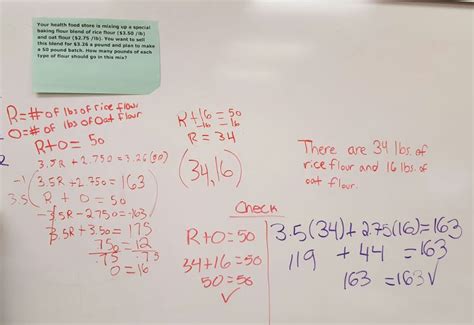 Your health food store is mixing up a special
baking flour blend of rice flour ($3.50 /lb)
and oat flour ($2.75 /lb). You want to sell
this blend for $3.26 a pound and plan to make
a 50 pound batch. How many pounds of each
type of flour should go in this mix?
R=# of lbs of rice flour
O=# of lbs of Oat flour
R+O=50
3.5R + 2.75O = 3.26(50)
-1(3.5R + 2.75O = 163
3.5(R + O = 50
-3.5R - 2.75O = -163
3.5R + 3.5O = 175
.75O = 12
.75 .75
O = 16
R+16 = 50
-16 -16
R = 34
(34,16)
There are 34 lbs. of
rice flour and 16 lbs. of
oat flour.
Check
R+O=50
34+16=50
50=50
✓
3.5(34)+2.75(16)=163
119 + 44 = 163
163 = 163 ✓